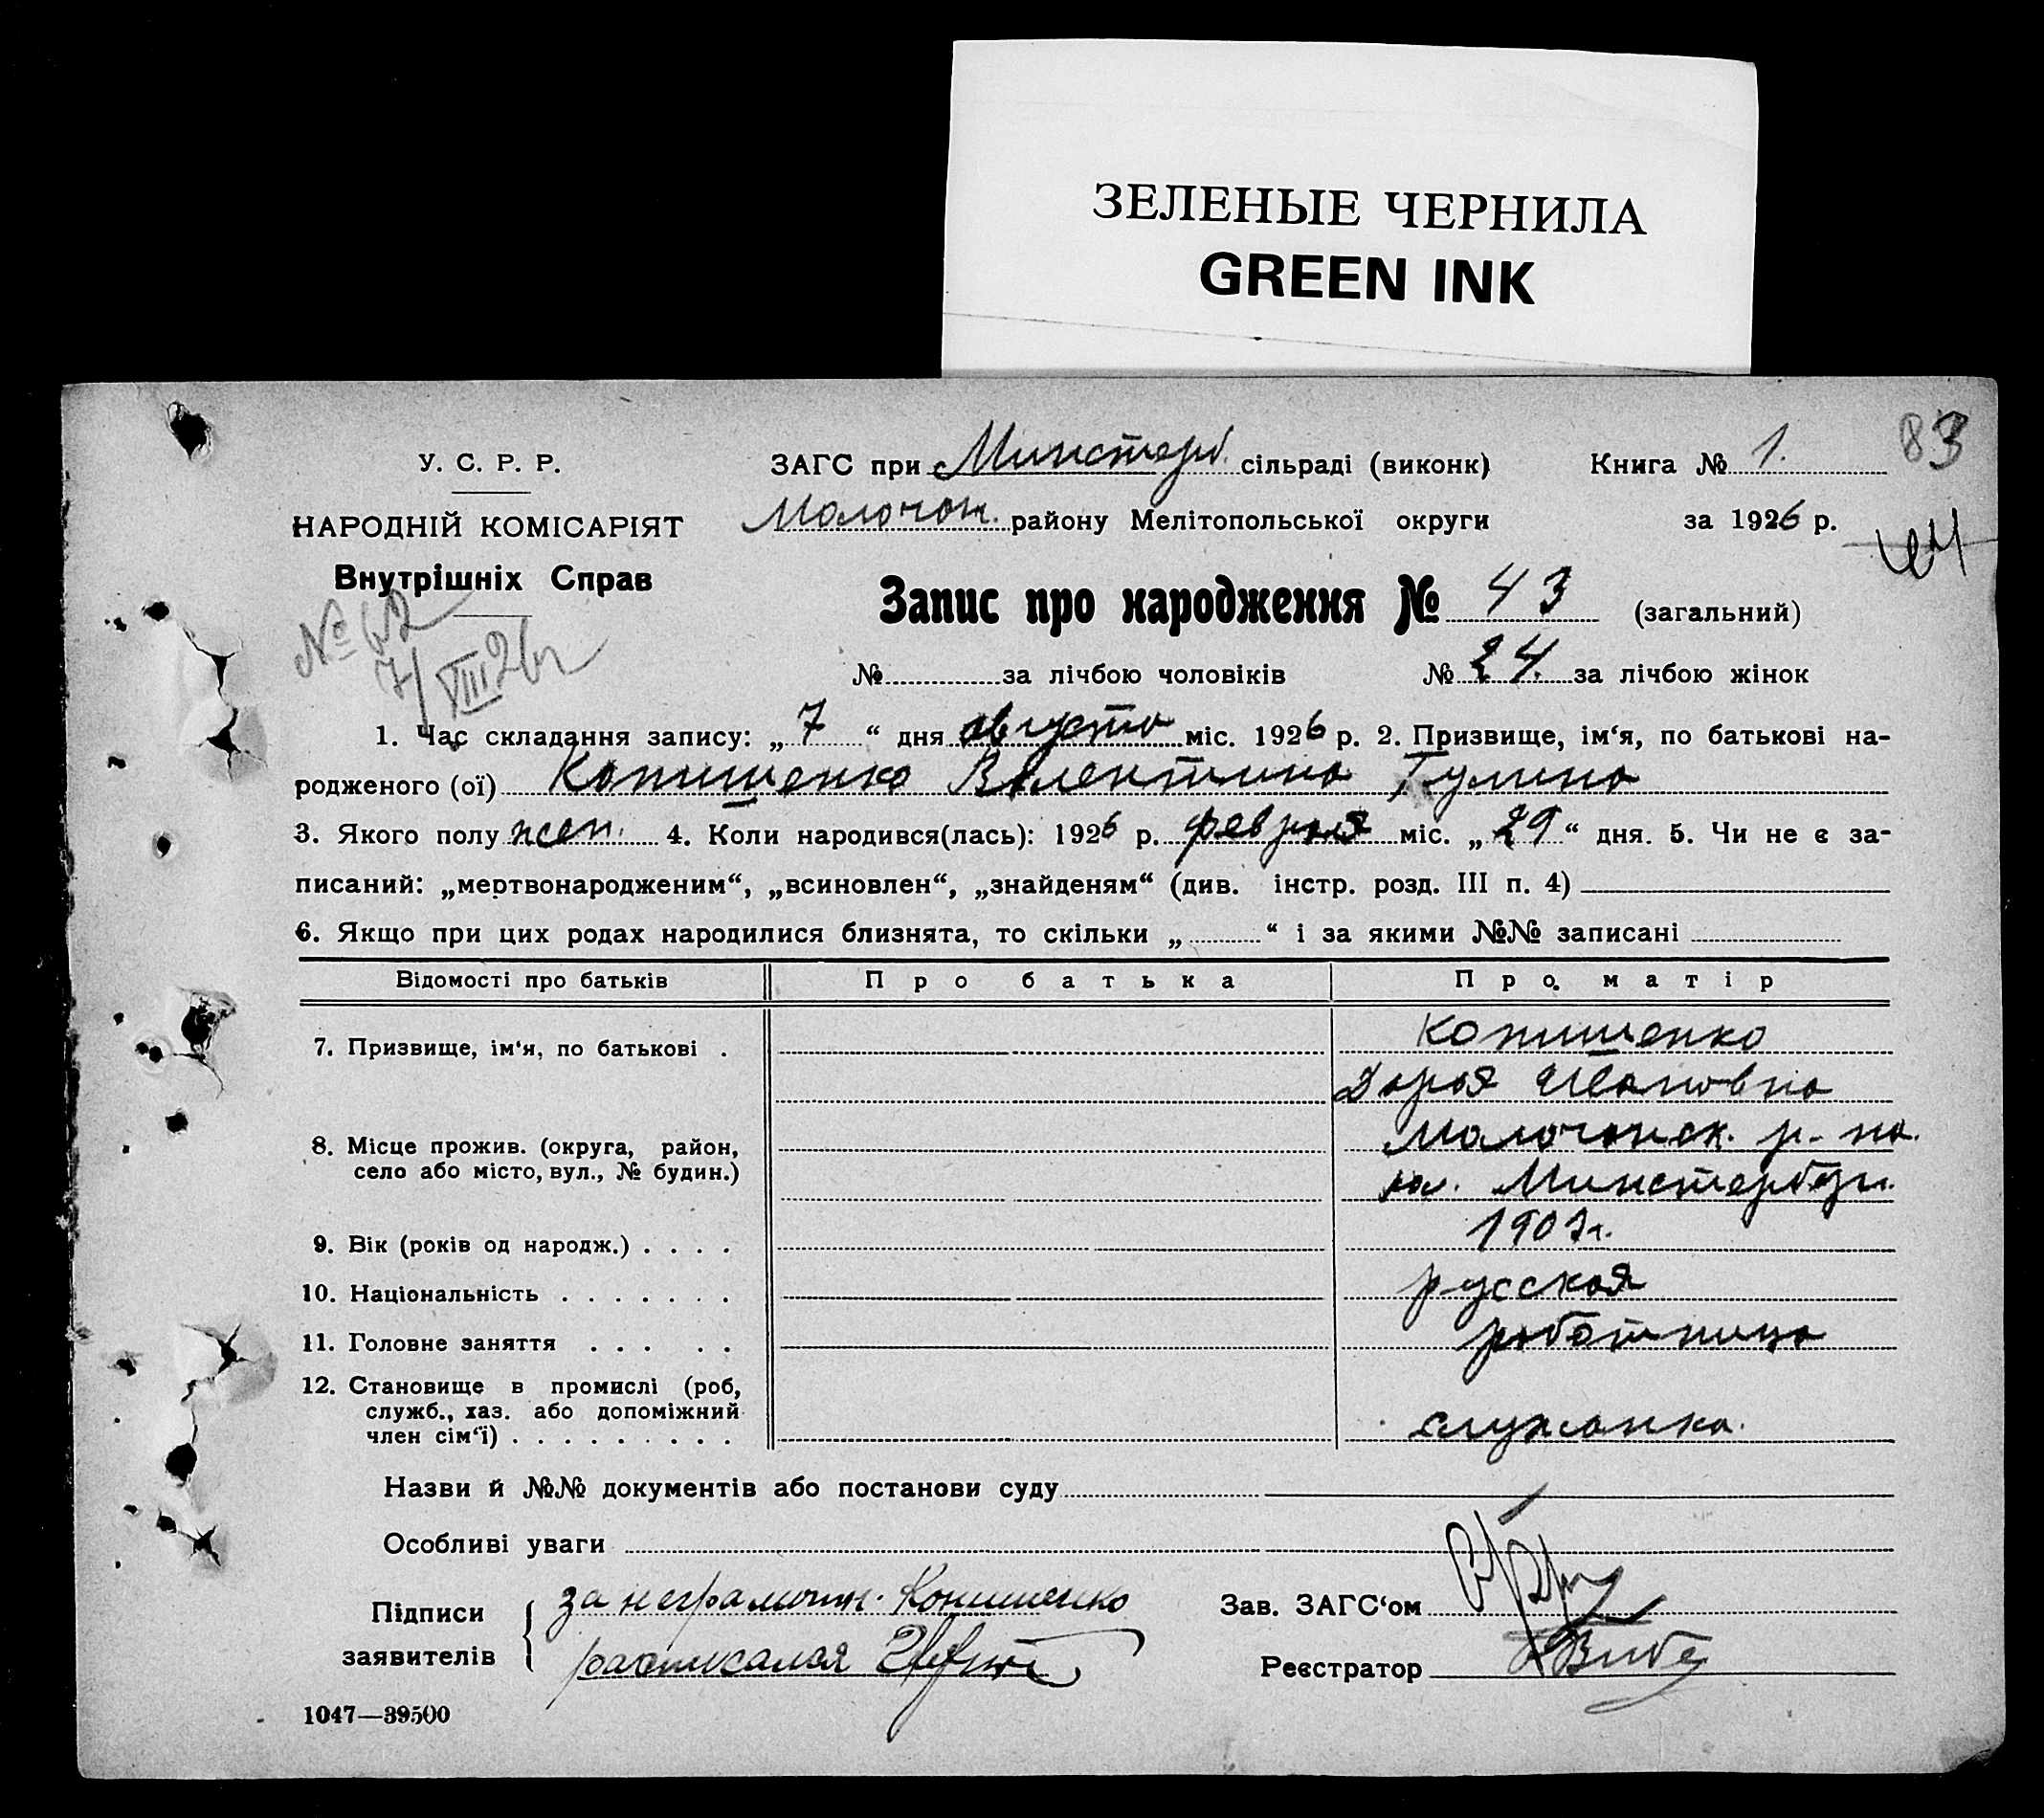 ЗЕЛЕНЫЕ ЧЕРНИЛА
GREEN INK
83
У. С. Р. Р.
НАРОДНІЙ КОМІСАРІЯТ
Внутрішніх Справ
№ 62
7/VIII 26 г
ЗАГС при Минстерб. сільраді (виконк) Книга № 1.
Молочан. району Мелітопольської округи за 1926 р.
Запис про народження № 43 (загальний)
№ за лічбою чоловіків № 24. за лічбою жінок
1. Час складання запису: „ 7 “ дня августа міс. 1926 р. 2. Призвище, ім‘я, по батькові на-
родженого (ої) Копишенко Валентина
3. Якого полу жен. 4. Коли народився(лась): 1926 р. февраля міс. „ 29 “ дня. 5. Чи не є за-
писаний: „мертвонародженим“, „всиновлен“, „знайденям“ (див. інстр. розд. III п. 4)
6. Якщо при цих родах народилися близнята, то скільки „ “ і за якими №№ записані
Відомості про батьків Про батька Про матір
7. Призвище, ім‘я, по батькові . Копишенко
Дарья Ивановна
8. Місце прожив. (округа, район, Молочанск. р-на.
село або місто, вул., № будин.) кол. Минстерберг.
9. Вік (років од народж.) . . . . 1907 г.
10. Національність . . . . . . . русская
11. Головне заняття . . . . . работница
12. Становище в промислі (роб,
служб., хаз. або допоміжний
член сім‘ї) . . . . . . . . . служанка.
Назви й №№ документів або постанови суду
Особливі уваги
Підписи за неграмотн. Копишенко Зав. ЗАГС‘ом
заявителів расписался Реєстратор
1047—39500